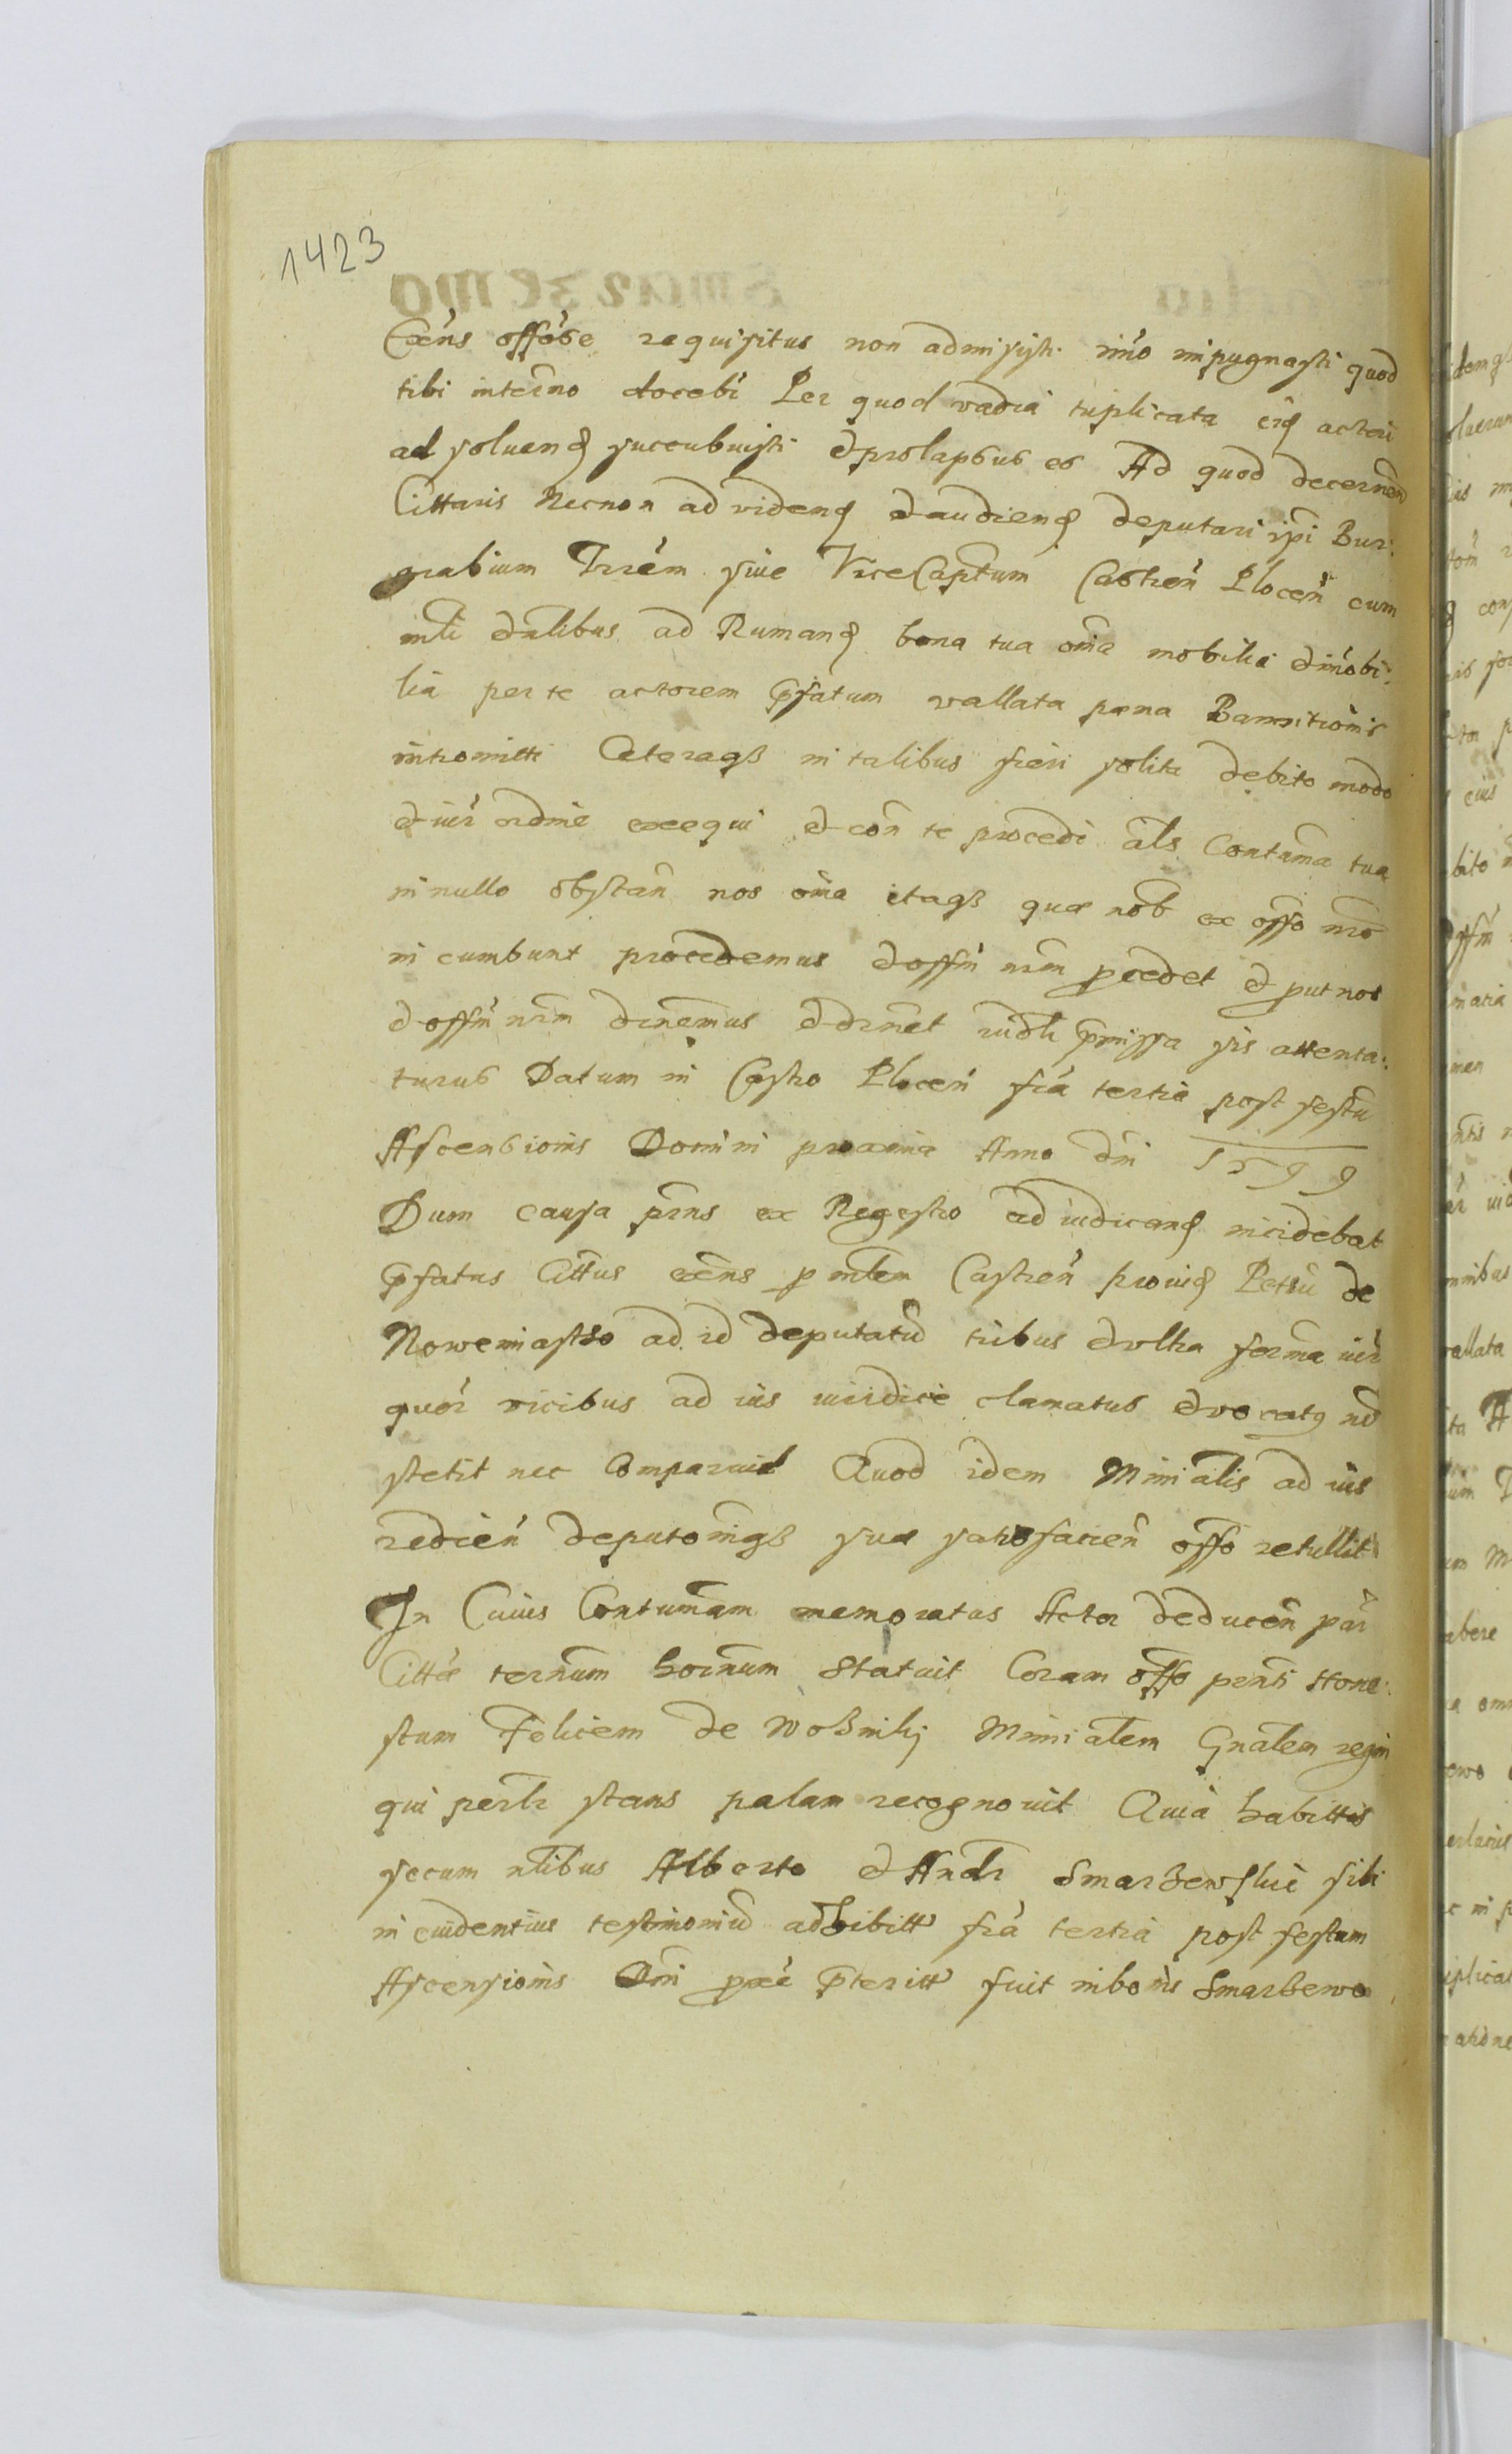 1423
Exñs offose requisitus non admisisti imo impugnasti quod
tibi interno docebř Per quod vadia triplicata eiđ actori
ad soluenđ succubuisti et prolapsus es Ad quod decernen
Cittaris Necnon ad videnđ et audienđ deputari ipi Bur:
grabium Trrem siue ViceCaptum Castreñ Ploceñ cum
mli et nlibus ad Rumanđ bona tua oma mobilia et imobi:
lia per te actorem pfatum vallata pæna Bannitionis
intromitti Ceteraqß in talibus fieri solita debito modo
et iur ordine exequi et con te procedi als Contuma tua
in nullo obstañ nos oma itaqß quæ nob ex offo nro
incumbunt procedemus et offm nrm pcedet et put nos
et offm nrm dcnemus et dcnet iudli pmissa sis attenta:
turus Datum in Castro Ploceñ fia tertia post festu
Ascensionis Domini proxima Anno dni 1599
Dum causa prns ex Regestro ad iudicanđ incidebat
pfatus Cittus exñs p mlem Castreñ prouiđ Petru de
Nowemiastho ad id deputatu tribus et vltra forma iur
quor vicibus ad ius iuridice clamatus et vocatꝯ no
stetit nec Comparuit Quod idem Minialis ad ius
redieñ deputoniqß suæ satisfacieñ offo retullit
In Cuius Contumam memoratus Actor deduceñ par
Cittæ ternum hocnum Statuit Coram offo prnti Hone:
stum Felicem de Woßniky Minialem Gnalem regni
qui perlr stans palam recognouit Quia habittis
secum nlibus Alberto et Andr Smarßewskie sibi
in euidentius testimoniu adhibitt fia tertia post festum
Ascensionis Dni pxe pteritt fuit in bonis Smarßewo